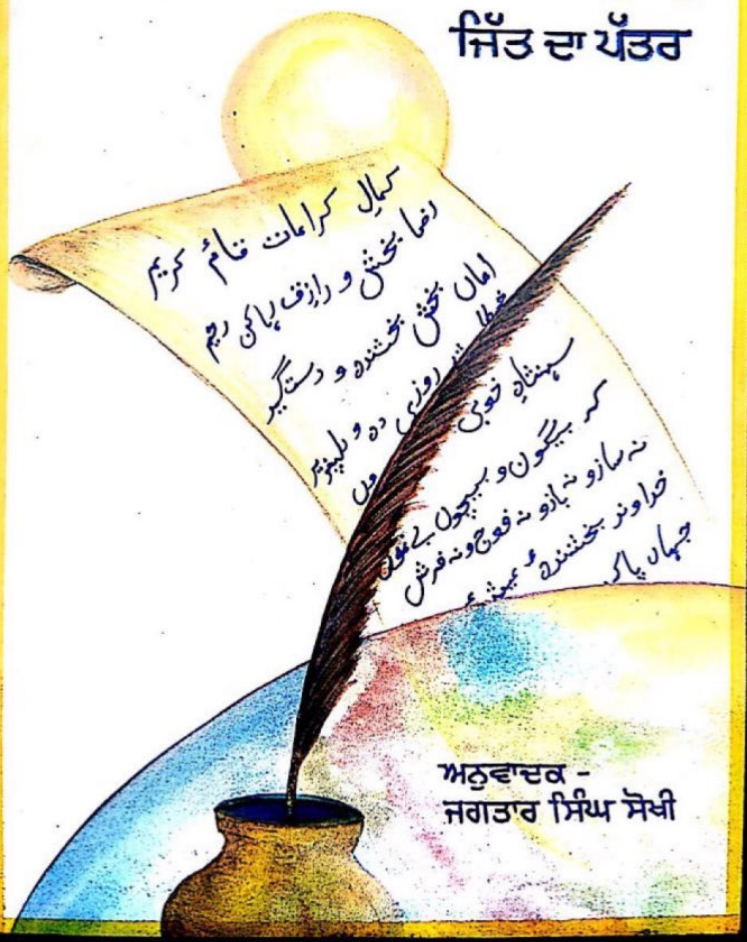 ਜਿੱਤ ਦਾ ਪੱਤਰ
کمالِ کرامات قائم کریم
رضا بخش و رازق رہاکن رحیم
اماں بخش بخشنده و دستگیر
روزی ده و دلپذیر
شہنشاہِ خوبی
کہ بیگون و بیچون
نہ سازو نہ بازو نہ فوج و نہ فرش
خداوند بخشنده
جہاں پاک
ਅਨੁਵਾਦਕ -
ਜਗਤਾਰ ਸਿੰਘ ਸੋਖੀ